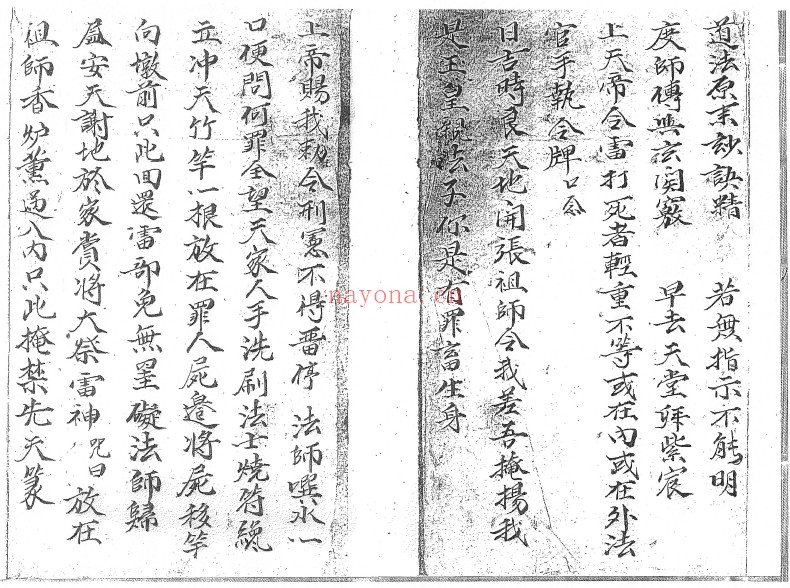 道法原来妙訣精 若無指示不能明
度師傳與玄関竅 早去天堂拜紫宸
上天帝令雷打死者輕重不等或在内或在外法
官手執令牌口念
日吉時良天地開張祖師令我差吾掩揚我
是玉皇 法子你是有罪畜生身
上帝賜我勅令刑憲不得畱停 法師噀水一
口便問何罪全望天家人手洗刷法士燒符
立冲天竹竿一根放在罪人屍邉將屍移竿
向墩前只此回還雷部免無罣礙法師歸
安天謝地於家賣將大祭雷神 咒曰 放在
祖師香炉薫過入内只此掩禁先天篆
nayona.cn